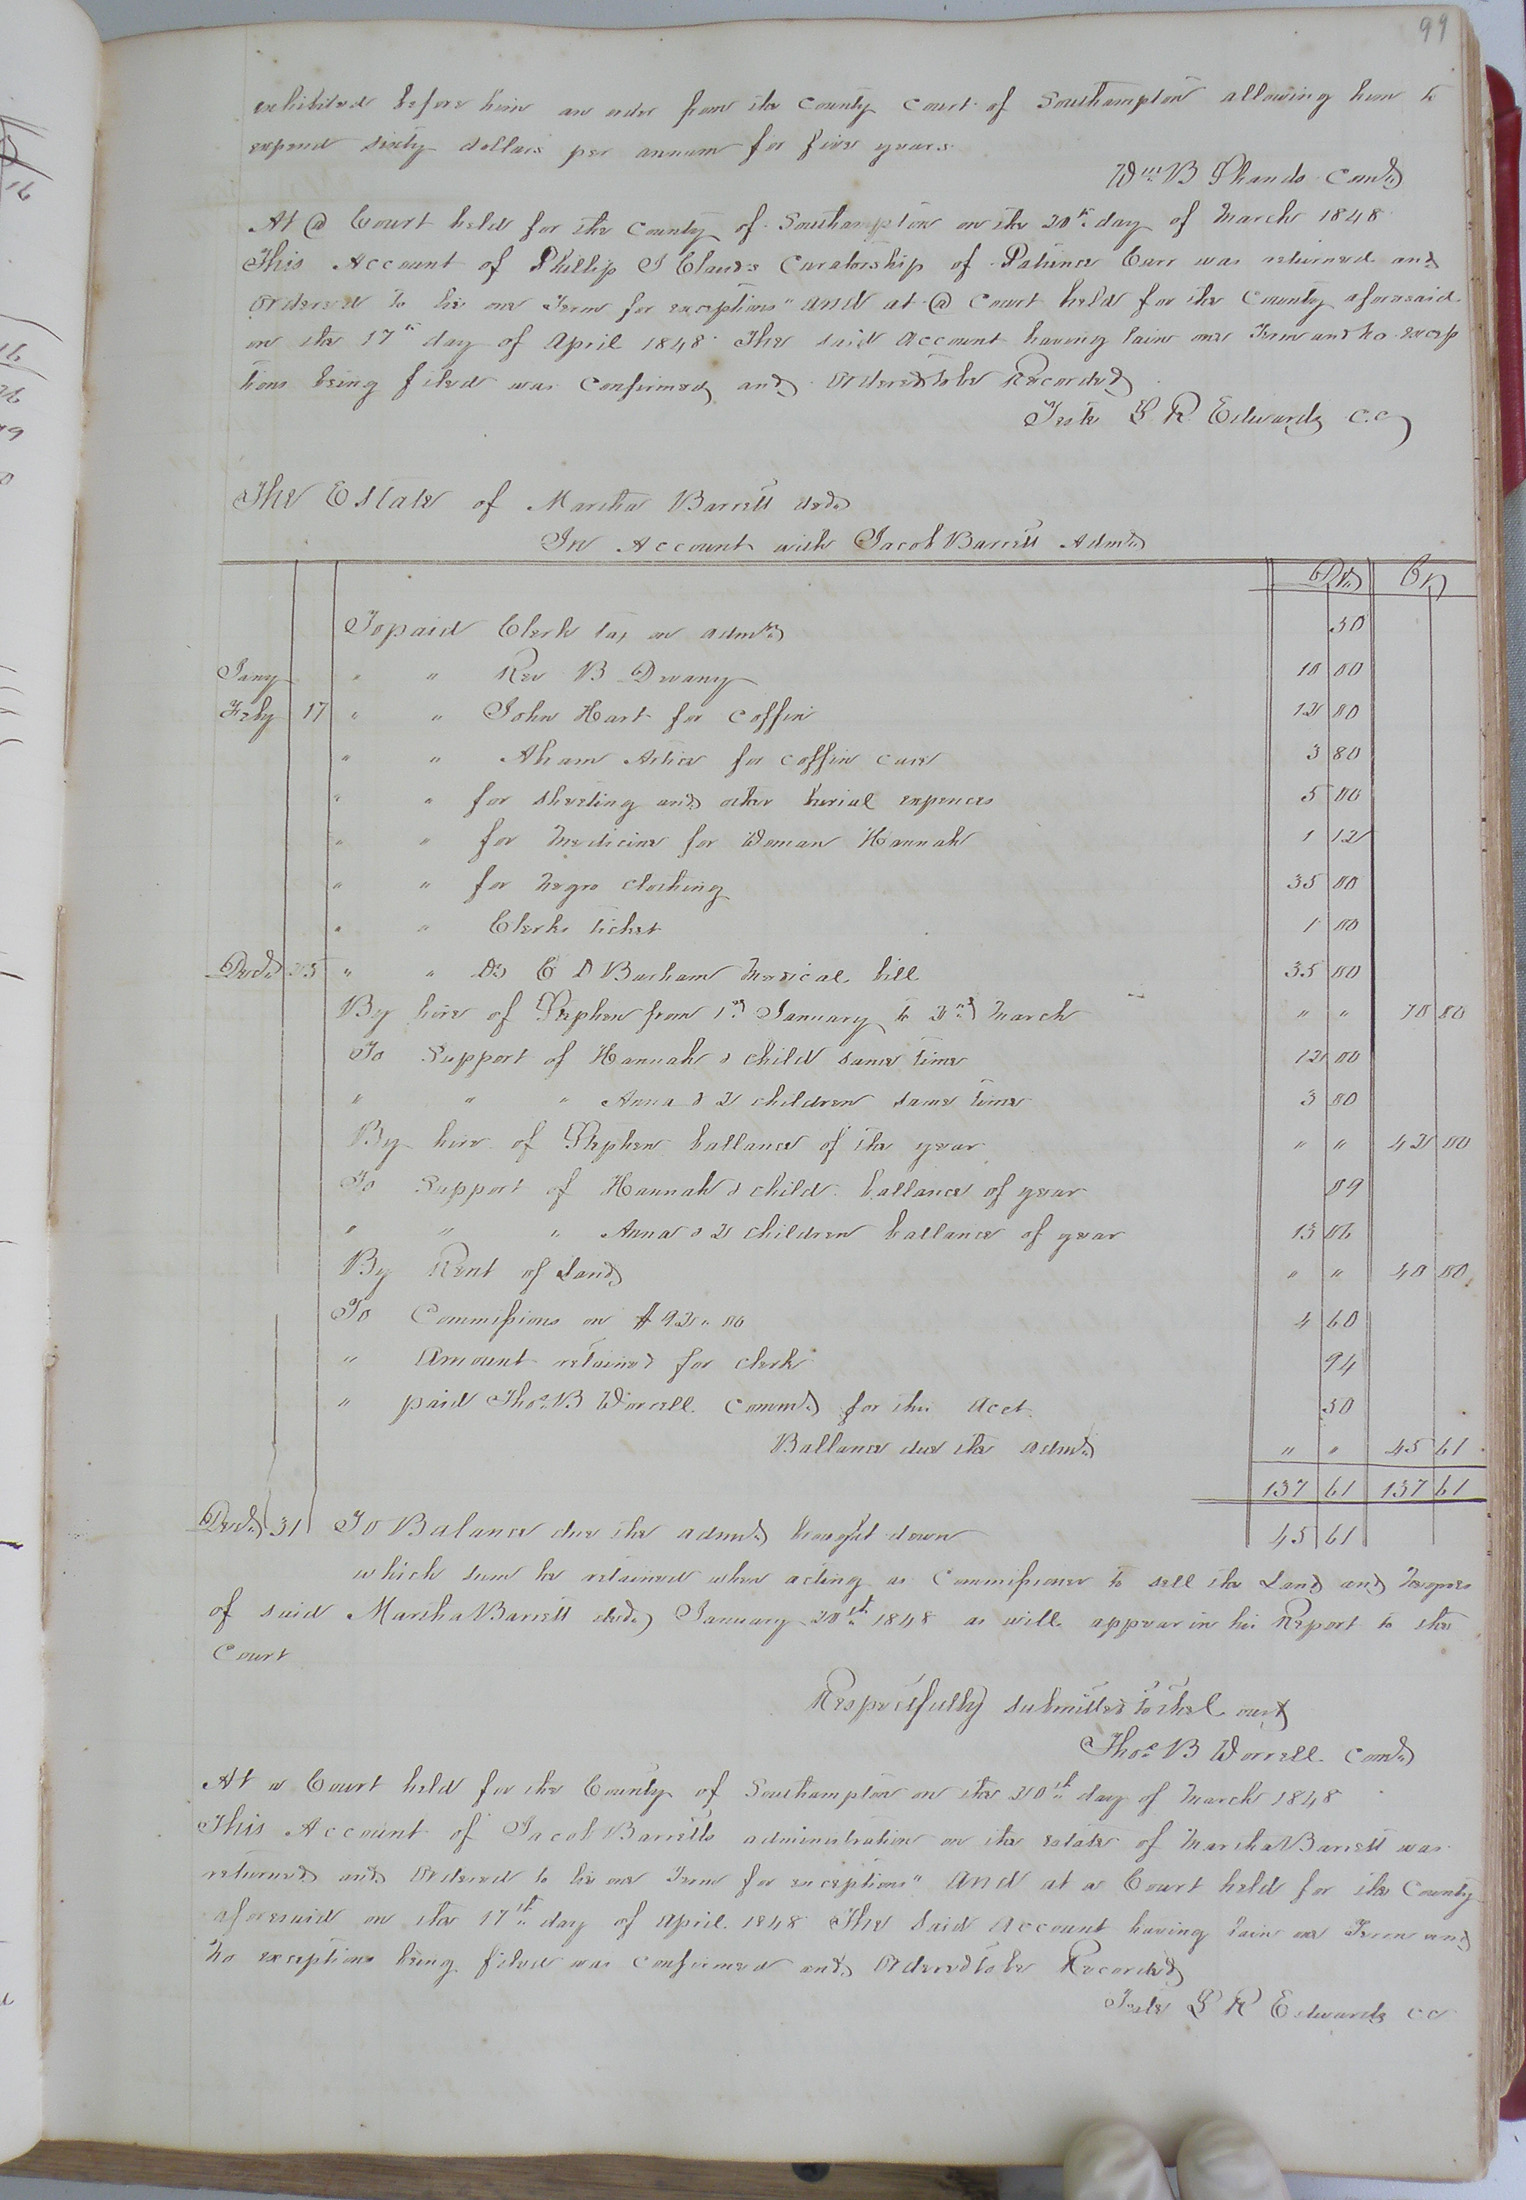 99
exhibited before him an order from the County Court of Southampton allowing him to
expend sixty dollars per annum for five years
Wm B Shands Comr
At @ Court held for the County of Southampton on the 20th day of March 1848
This Account of Phillip J Claud's Curatorship of Patience Carr was returned and
Ordered to lie one Term for exceptions" and at @ Court held for the County aforesaid
on the 17th day of April 1848 The said Account having lain one Term and no excep
tions being filed was Confirmed and Ordered to be Recorded
Teste L R Edwards C.C
The Estate of Martha Barrett decd
In Account with Jacob Barrett Admr
Dr Cr
To paid Clerk tax on admn 50
Jany " " Rev B Devany 10 00
Feby 17 " " John Hart for Coffin 12 00
" " for coffin case 3 80
" " for sheeting and other burial expences 5 00
" " for Medicine for Woman Hannah 1 12
" " for Negro clothing 35 00
" " Clerks ticket 1 00
Decr 25 " " Dr C D Barham Medical bill 35 00
By hire of Stephen from 1st January to 2nd March " " 10 00
To Support of Hannah & child same time 12 00
" " " Anna & 2 children same time 3 00
By hire of Stephen ballance of the year " " 42 00
To Support of Hannah & child ballance of year 09
" " " Anna & 2 children ballance of year 13 06
By Rent of Land " " 40 00
To Commissions on $92.00 4 60
" Amount retained for clerk 94
" paid Thos B Worrell Commr for this Acct. 50
Ballance due the Admr " " 45 61
137 61 137 61
Decr 31 To Balance due the admr brought down 45 61
which sum he retained when acting as Commissioner to sell the Land and Negroes
of said Martha Barrett decd January 20th 1848 as will appear in his Report to the
Court
Respectfully submitted to the Court
Thos B Worrell Comr
At a Court held for the County of Southampton on the 20th day of March 1848
This Account of Jacob Barretts administration on the estate of Martha Barrett was
returned and Ordered to lie one Term for exceptions" And at a Court held for the County
aforesaid on the 17th day of April 1848 The Said Account having lain one Term and
no exceptions being filed was Confirmed and Ordered to be Recorded
Teste L R Edwards CC